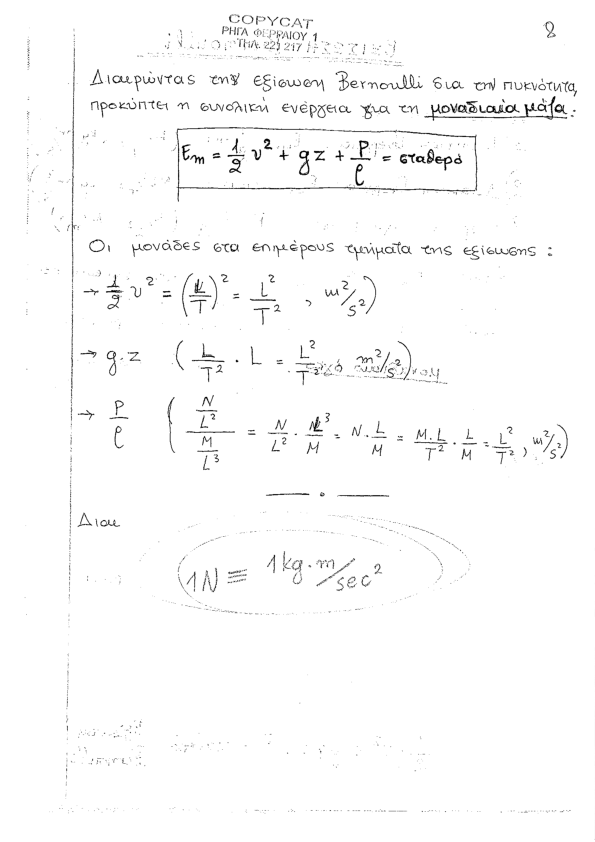 COPYCAT
ΡΗΓΑ ΦΕΡΡΑΙΟΥ 1
ΤΗΛ. 221 217
8
Διαιρώντας την εξίσωση Bernoulli δια την πυκνότητα,
προκύπτει η συνολική ενέργεια για τη μοναδιαία μάζα:
Em = 1/2 υ² + gz + P/ρ = σταθερό
Οι μονάδες στα επιμέρους τμήματα της εξίσωσης :
→ 1/2 υ² = (L/T)² = L²/T² , m²/s²)
→ g.z ( L/T² · L = L²/T² m²/s²)
→ P/ρ ( N/L² / M/L³ = N/L² · L³/M = N · L/M = M.L/T² · L/M = L²/T² , m²/s²)
Διαι
1N ≡ 1kg·m/sec²